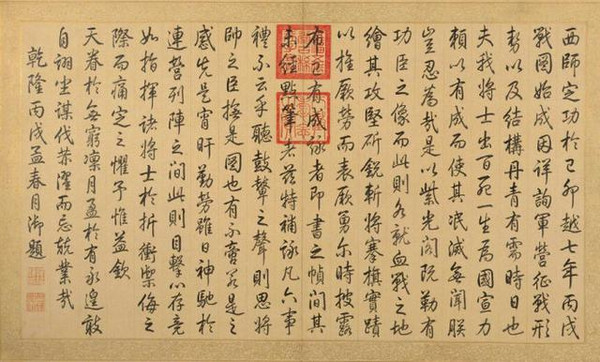 西師定功於己卯越七年丙戌
戰圖始成因詳詢軍營征戰形
勢以及結構丹青有需時日也
夫我將士出百死一生為國宣力
賴以有成而使其泯滅無聞朕
豈忍為哉是以紫光閣既勒有
功臣之像而此則各就血戰之地
繪其攻堅斫銳斬將搴旗實蹟
以旌厥勞而表厥勇爾時披露
有已有成詠者即書之幀間其
未經點筆者茲特補詠凡六事
禮不云乎聽鼓鼙之聲則思將
帥之臣撫是圖也有不啻若是之
感先是宵旰勤勞雖日神馳於
連營列陣之間此則目擊心存竟
如指揮諸將士於折衝禦侮之
際而痛定之懼予惟益欽
天眷於無窮凜月盈於有永遑敢
自詡坐謀伐濯而忘兢業哉
乾隆丙戌孟春月御題